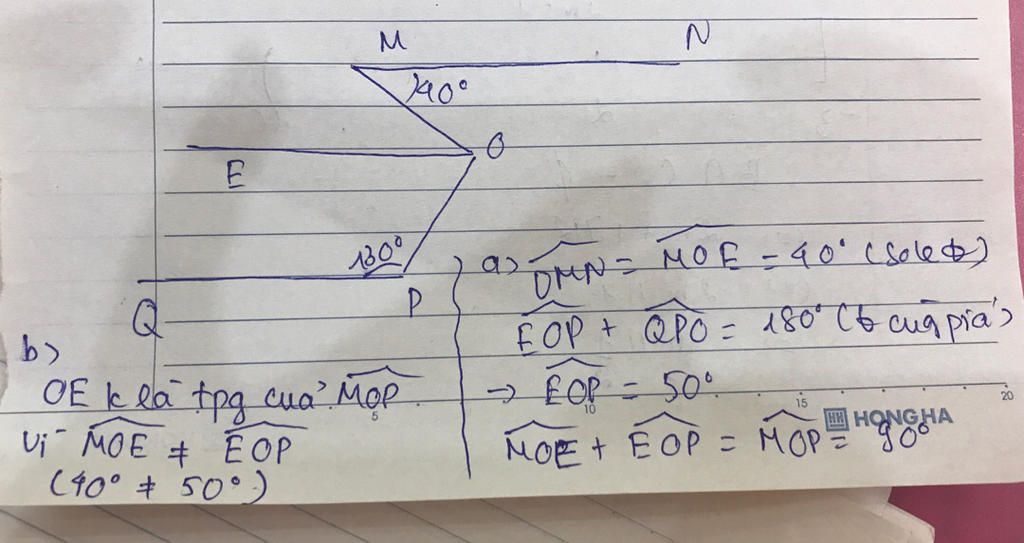 M N
40°
O
E
130°
Q P
a) OMN = MOE = 40° (sole t)
EOP + QPO = 180° (t cùg pía)
→ EOP = 50°
MOE + EOP = MOP = 90°
b)
OE k là tpg của MOP
Vì MOE ≠ EOP
(40° ≠ 50°)
5 10 15 20
HH HONG HA